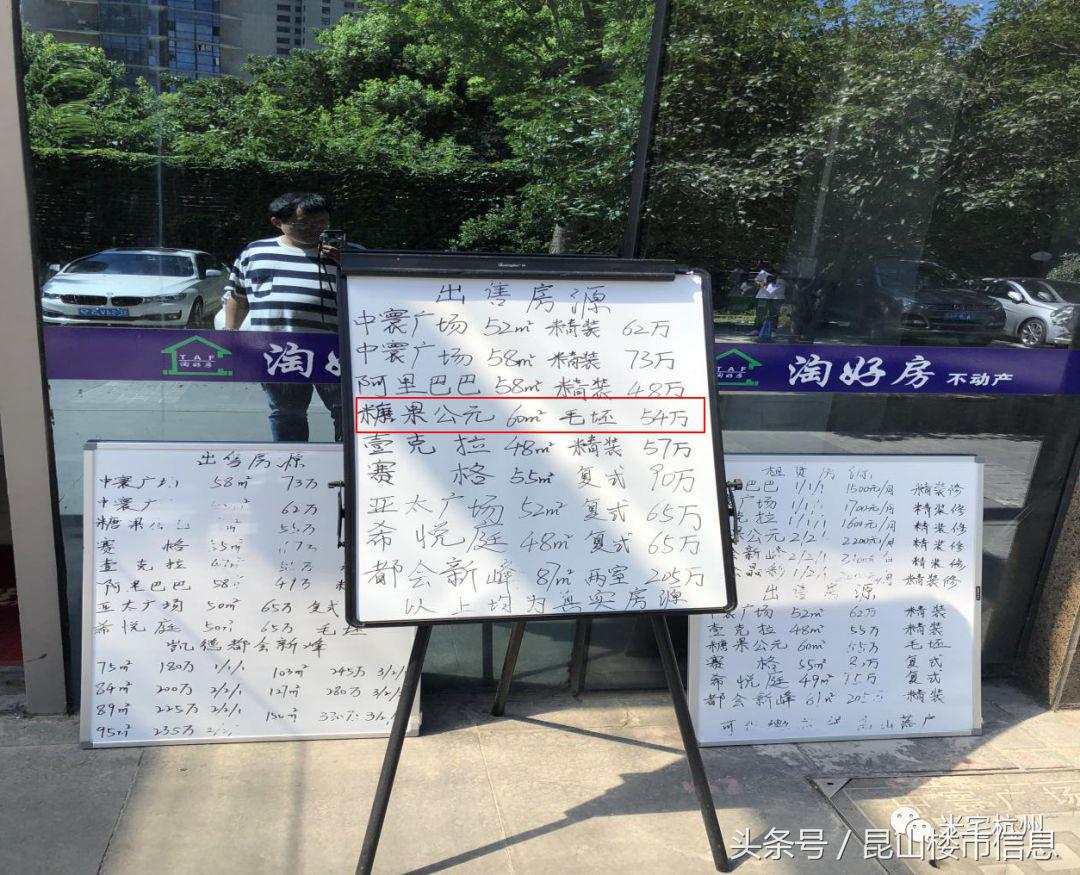 TAF
淘好房
淘好房
淘好房 不动产
出售房源
中寰广场 52m² 精装 62万
中寰广场 58m² 精装 73万
阿里巴巴 58m² 精装 48万
糖果公元 60m² 毛坯 54万
壹克拉 48m² 精装 57万
赛格 55m² 复式 90万
亚太广场 52m² 复式 65万
希悦庭 48m² 复式 65万
都会新峰 87m² 两室 205万
以上均为真实房源
出售房源
中寰广场 58m² 73万
中寰广 62万
糖果公 55万
赛格
壹克拉
阿里巴巴 58m² 41万
亚太广场 50m² 65万 复式
希悦庭 65万 毛坯
凯德都会新峰
75m² 180万 1/1/1 103m² 245万 3/2/1
84m² 200万 2/2/1 127m² 280万 3/2
89m² 225万 2/2/1
95m² 235万
租赁房源
巴巴 1/1/1 1500元/月 精装修
广场 1/1/1 1700元/月 精装修
克拉 1/1/1 1600元/月 精装修
果公元 2/2/1 2200元/月 精装修
会新峰 2/2/1 精装修
1/2/1 精装修
出售房源
中寰广场 52m² 62万 精装
壹克拉 48m² 55万 精装
糖果公元 60m² 55万 毛坯
赛格 55m² 复式
希悦庭 49m² 复式
都会新峰 精装
落户
米宅杭州
头条号 / 昆山楼市信息